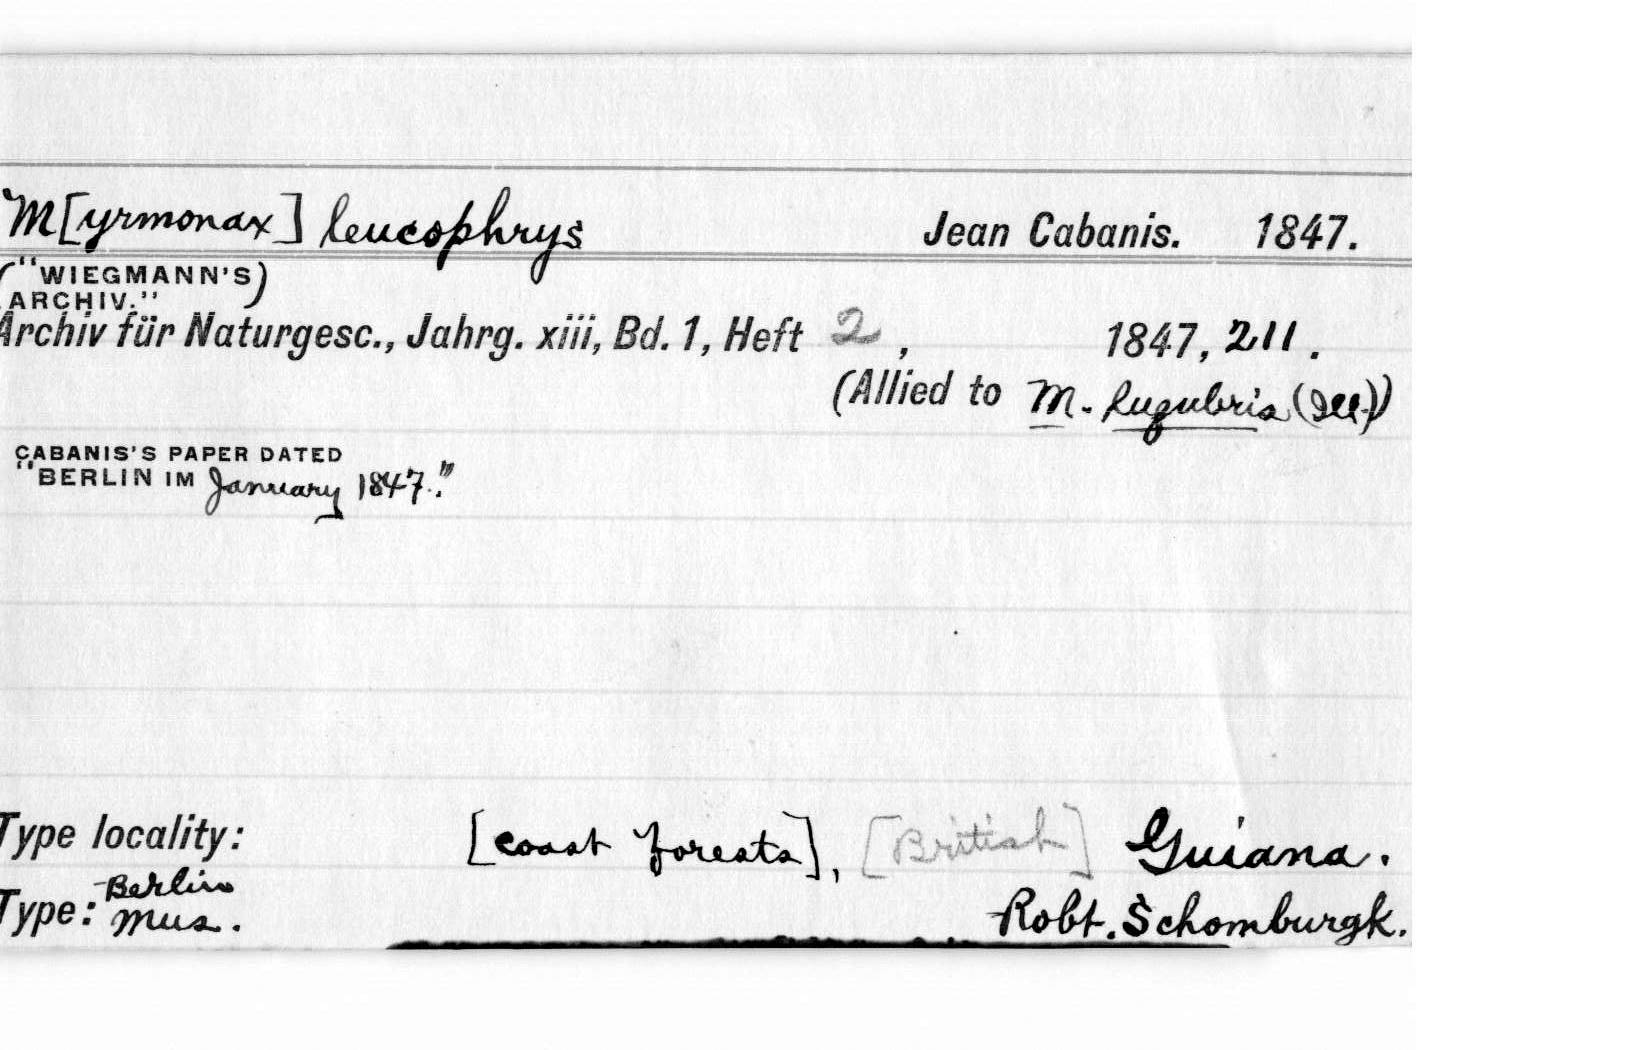 M[yrmonax] leucophrys Jean Cabanis. 1847.
("WIEGMANN'S)
ARCHIV."
Archiv für Naturgesc., Jahrg. xiii, Bd. 1, Heft 2, 1847, 211.
(Allied to M. lugubris (Ill.))
CABANIS'S PAPER DATED
"BERLIN IM January 1847."
Type locality: [coast forests], [British] Guiana.
Type: Berlin Mus. Robt. Schomburgk.